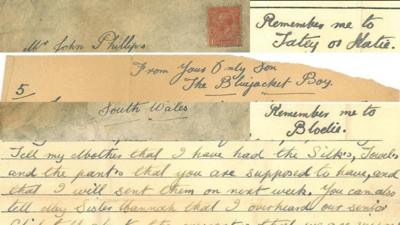 Mr John Phillips
Remember me to
Tatey or Katie.
From Your Only Son
5/
The Bluejacket Boy.
South Wales
Remember me to
Blodie.
Tell my Mother that I have had the Silks, Towels
and the pants that you are supposed to have, and
that I will sent them on next week. You can also
tell My Sister Hannah that I overheard our senior